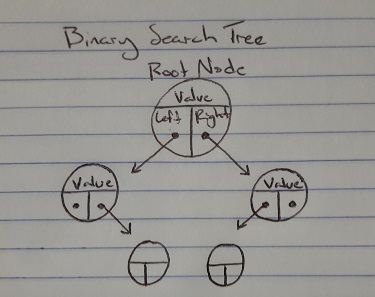 Binary Search Tree
Root Node
Value
Left Right
Value Value